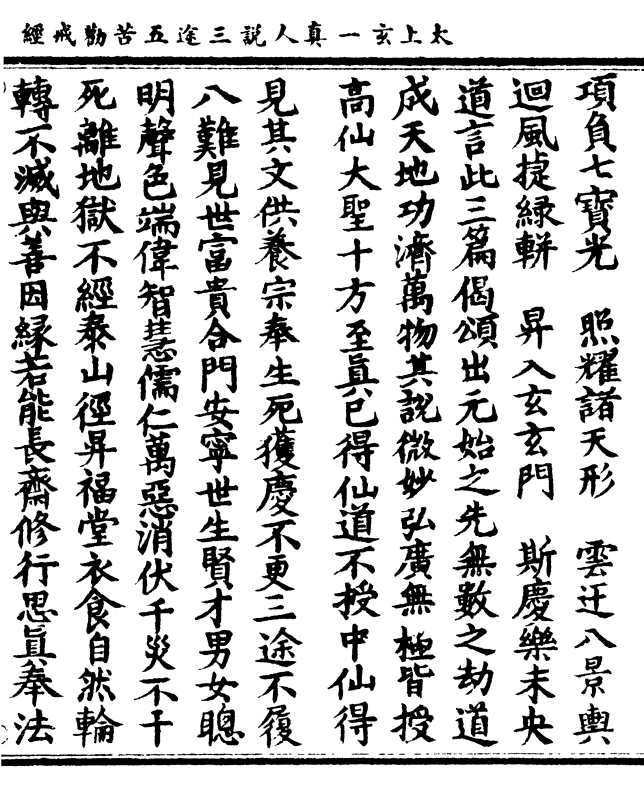 太上玄一真人説三途五苦勸戒經
項負七寶光　照耀諸天形　雲迂八景輿
迴風捷緑軿　昇入玄玄門　斯慶樂未央
道言此三篇偈頌出元始之先無數之劫道
成天地功濟萬物其説微妙弘廣無極皆授
高仙大聖十方至真已得仙道不授中仙得
見其文供養宗奉生死獲慶不更三途不履
八難見世富貴合門安寧世生賢才男女聰
明聲色端偉智慧儒仁萬惡消伏千災不干
死離地獄不經泰山徑昇福堂衣食自然輪
轉不滅與善因緣若能長齋修行思真奉法